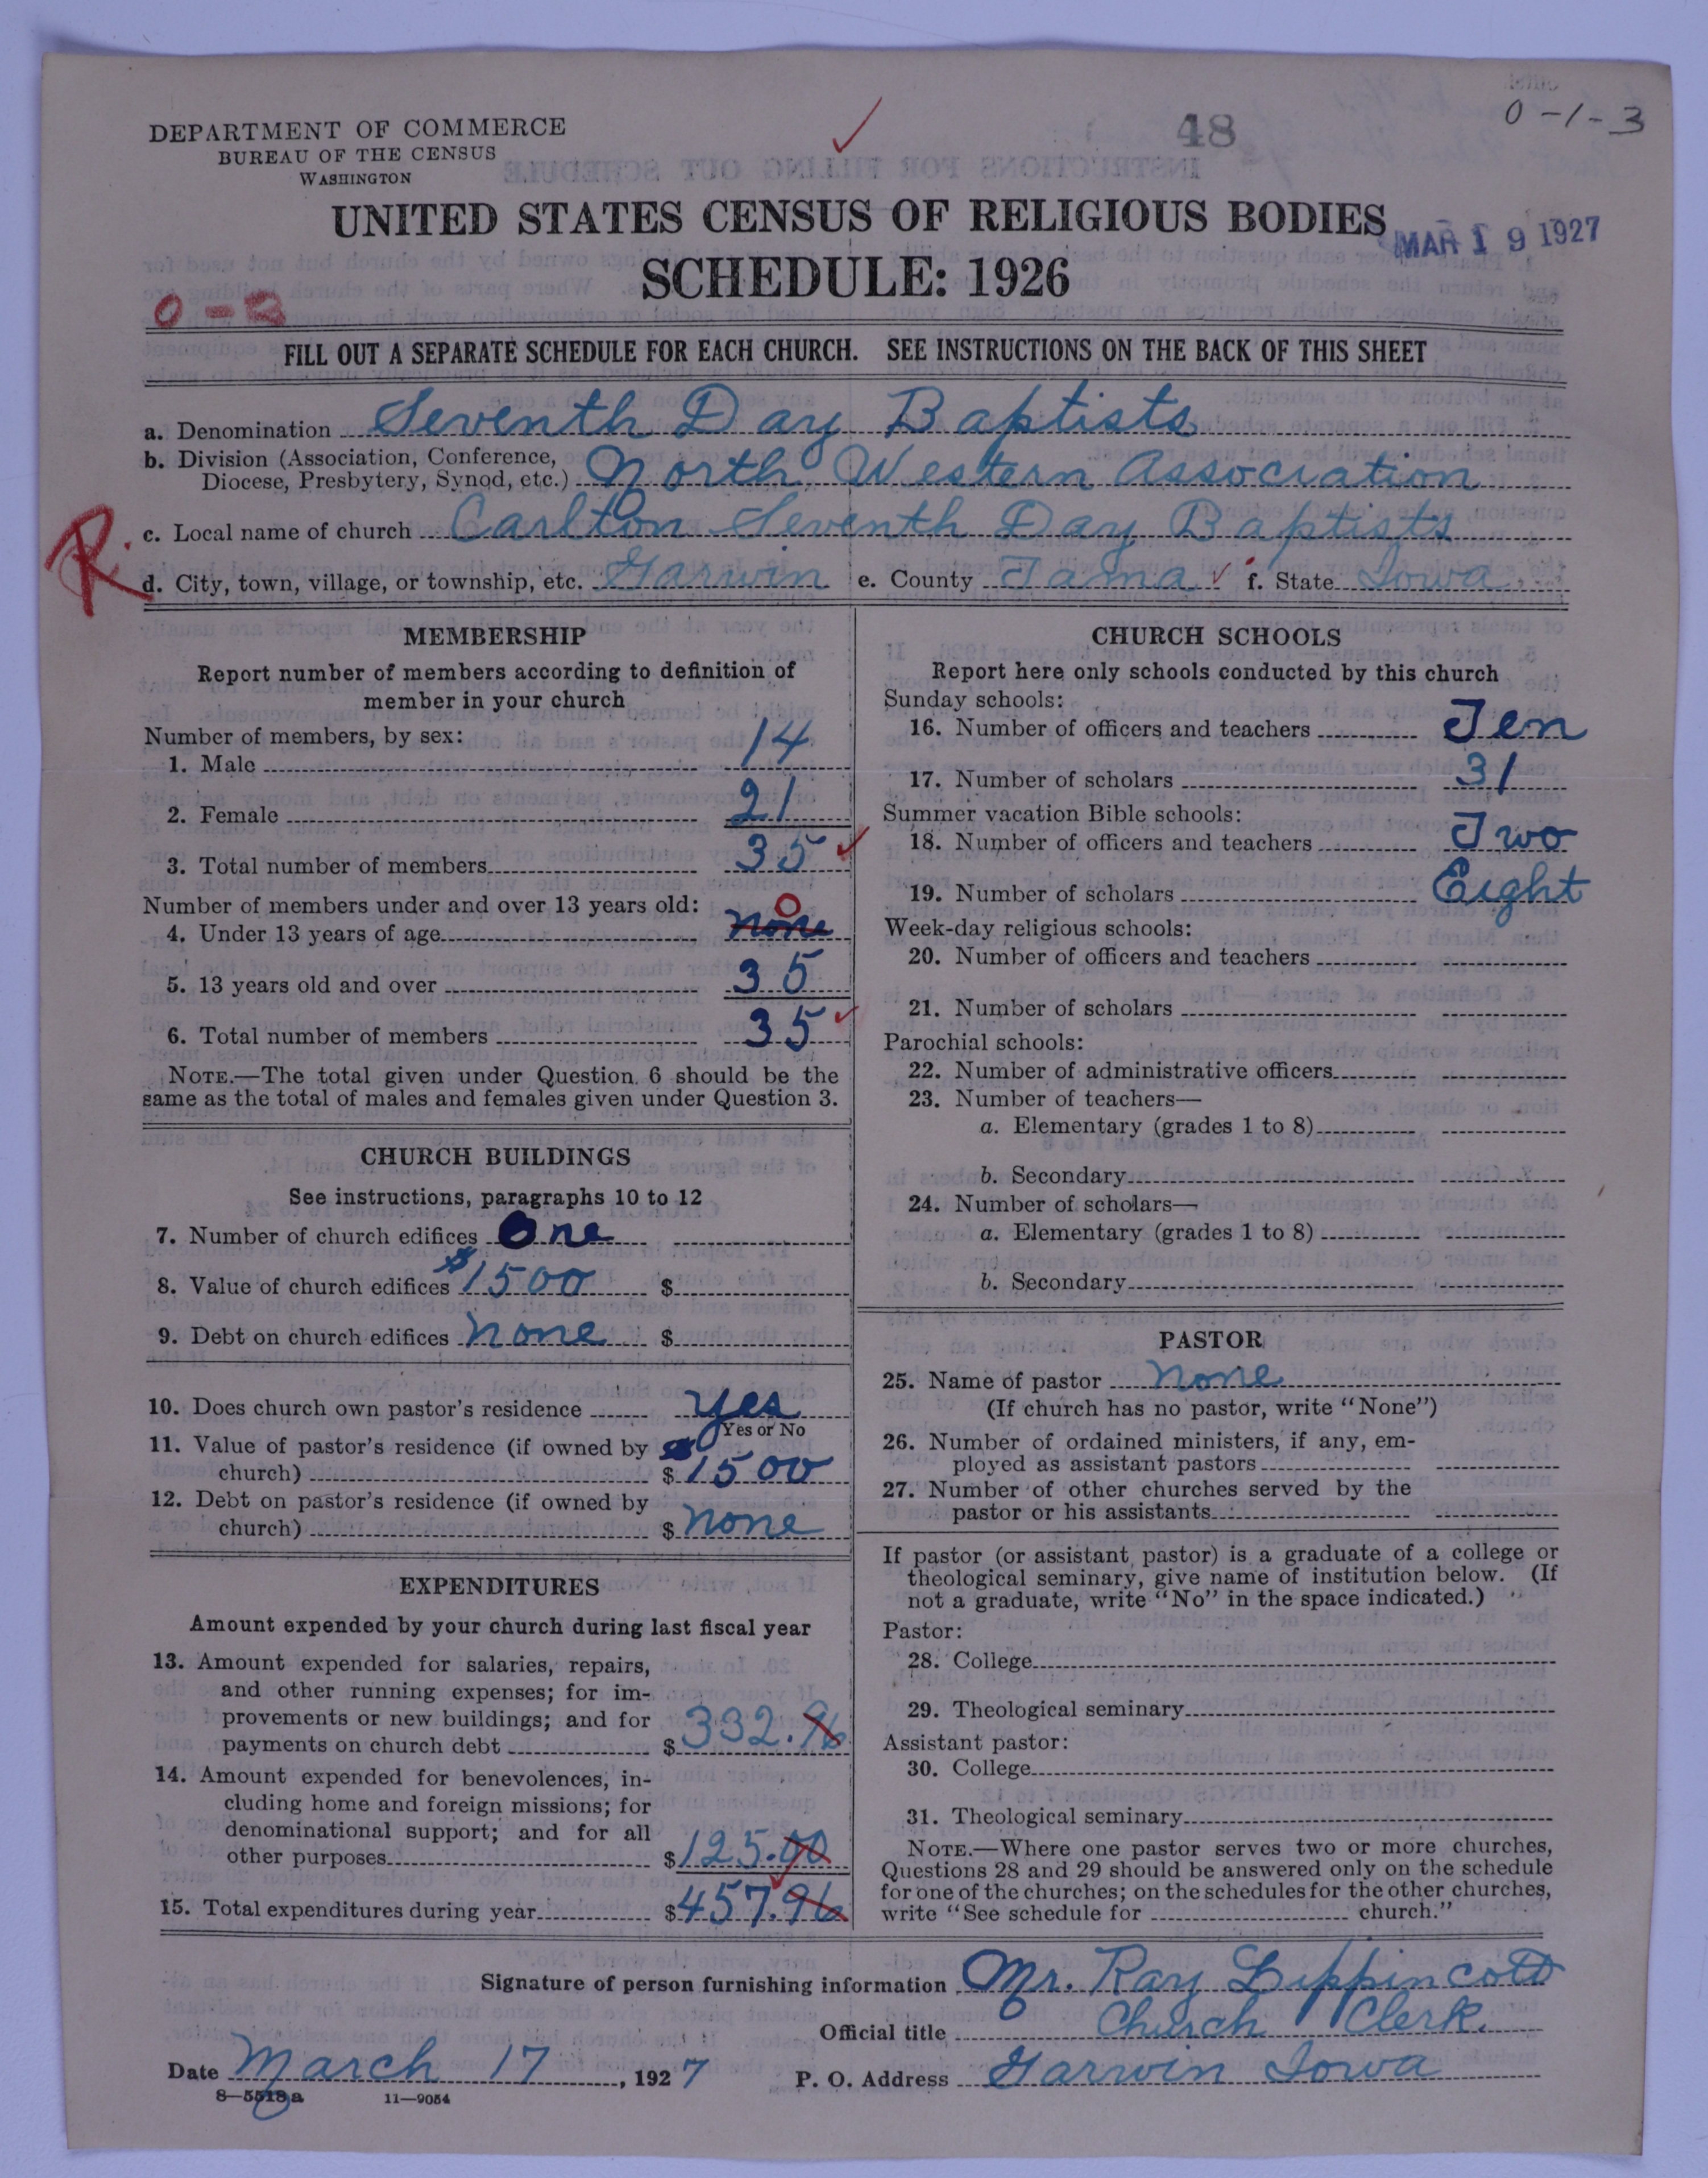 0-1-3
DEPARTMENT OF COMMERCE
BUREAU OF THE CENSUS
WASHINGTON
48
UNITED STATES CENSUS OF RELIGIOUS BODIES
MAR 19 1927
SCHEDULE: 1926
FILL OUT A SEPARATE SCHEDULE FOR EACH CHURCH. SEE INSTRUCTIONS ON THE BACK OF THIS SHEET
a. Denomination Seventh Day Baptists
b. Division (Association, Conference,
Diocese, Presbytery, Synod, etc.) North Western Association
R. c. Local name of church Carlton Seventh Day Baptists
d. City, town, village, or township, etc. Garwin e. County Tama f. State Iowa
MEMBERSHIP
Report number of members according to definition of
member in your church
Number of members, by sex:
1. Male 14
2. Female 21
3. Total number of members 35
Number of members under and over 13 years old: 0
4. Under 13 years of age none
5. 13 years old and over 35
6. Total number of members 35
NOTE.—The total given under Question 6 should be the
same as the total of males and females given under Question 3.
CHURCH BUILDINGS
See instructions, paragraphs 10 to 12
7. Number of church edifices One
8. Value of church edifices $1500 $
9. Debt on church edifices none $
10. Does church own pastor's residence yes
Yes or No
11. Value of pastor's residence (if owned by
church) $1500
12. Debt on pastor's residence (if owned by
church) $ none
EXPENDITURES
Amount expended by your church during last fiscal year
13. Amount expended for salaries, repairs,
and other running expenses; for im-
provements or new buildings; and for
payments on church debt $332.96
14. Amount expended for benevolences, in-
cluding home and foreign missions; for
denominational support; and for all
other purposes $125.00
15. Total expenditures during year $457.96
CHURCH SCHOOLS
Report here only schools conducted by this church
Sunday schools:
16. Number of officers and teachers Ten
17. Number of scholars 31
Summer vacation Bible schools:
18. Number of officers and teachers Two
19. Number of scholars Eight
Week-day religious schools:
20. Number of officers and teachers
21. Number of scholars
Parochial schools:
22. Number of administrative officers
23. Number of teachers—
a. Elementary (grades 1 to 8)
b. Secondary
24. Number of scholars—
a. Elementary (grades 1 to 8)
b. Secondary
PASTOR
25. Name of pastor none
(If church has no pastor, write "None")
26. Number of ordained ministers, if any, em-
ployed as assistant pastors
27. Number of other churches served by the
pastor or his assistants
If pastor (or assistant pastor) is a graduate of a college or
theological seminary, give name of institution below. (If
not a graduate, write "No" in the space indicated.)
Pastor:
28. College
29. Theological seminary
Assistant pastor:
30. College
31. Theological seminary
NOTE.—Where one pastor serves two or more churches,
Questions 28 and 29 should be answered only on the schedule
for one of the churches; on the schedules for the other churches,
write "See schedule for church."
Signature of person furnishing information Mr. Ray Lippincott
Official title Church Clerk.
Date March 17, 1927 P. O. Address Garwin Iowa
8—5518a 11—9054